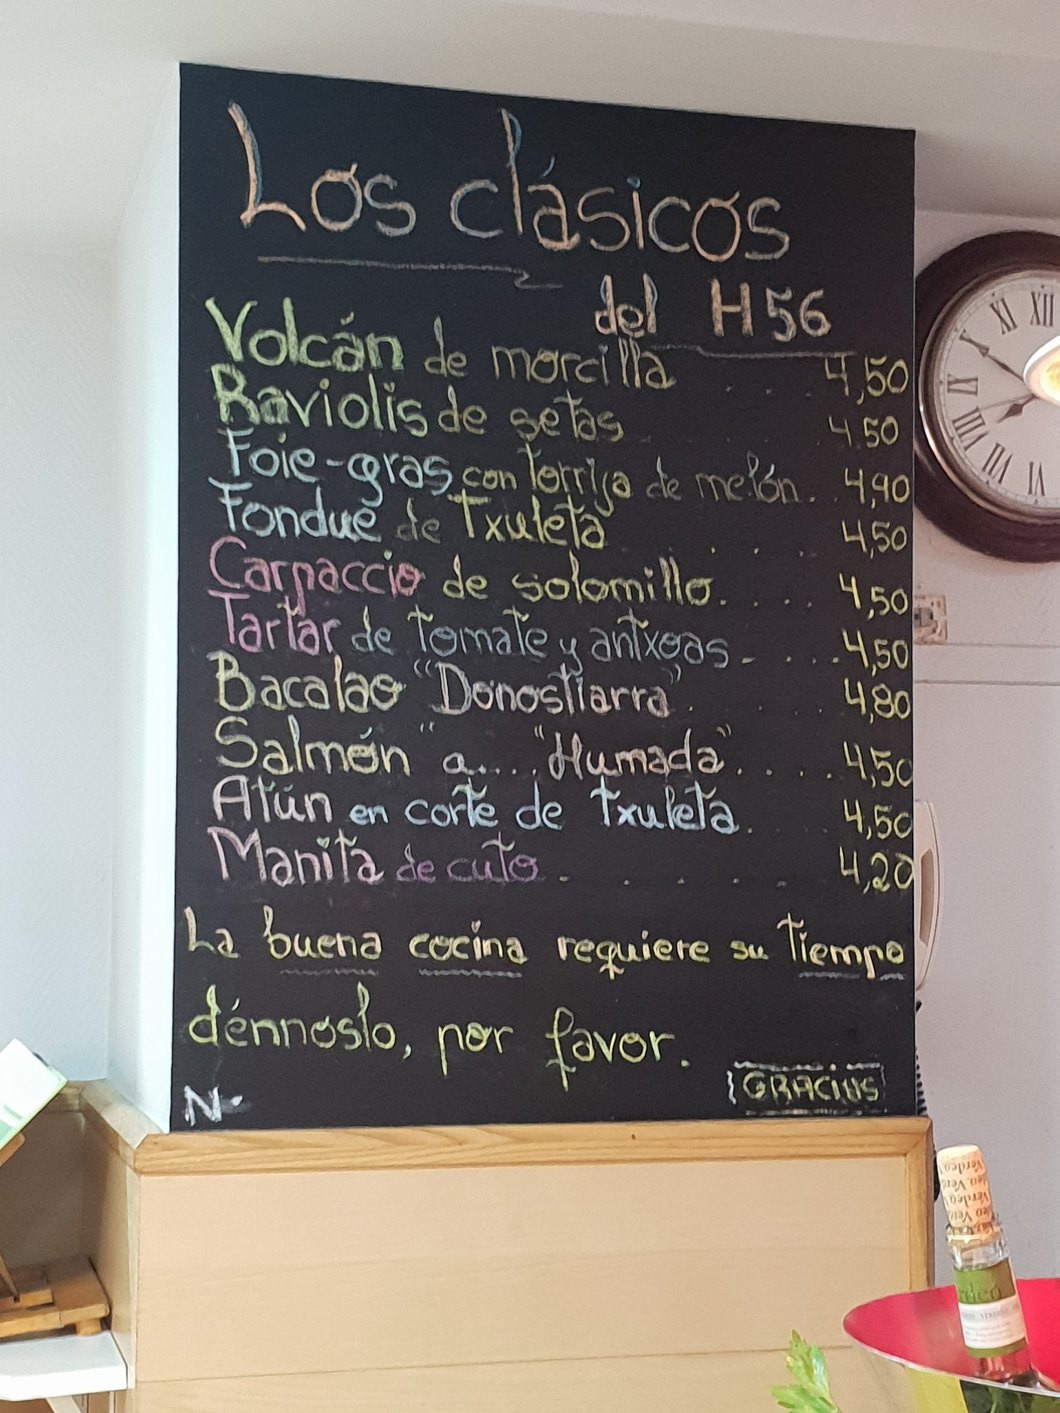 Los clásicos
del H56
Volcán de morcilla . . . 4,50
Raviolis de setas 4.50
Foie-gras con torrija de melón . . 4,90
Fondue de Txuleta . . . . 4,50
Carpaccio de solomillo . . . . . 4,50
Tartar de tomate y antxoas - . . . . 4,50
Bacalao "Donostiarra" . . . . 4,80
Salmón " a.... "Humada" . . . . . 4,50
Atún en corte de txuleta . . . . 4,50
Manita de cuto . . . . . 4,20
La buena cocina requiere su tiempo
dénnoslo, por favor.
N.
GRACIAS
XI XII
X
IX
VIII
VII VI
Verdeo